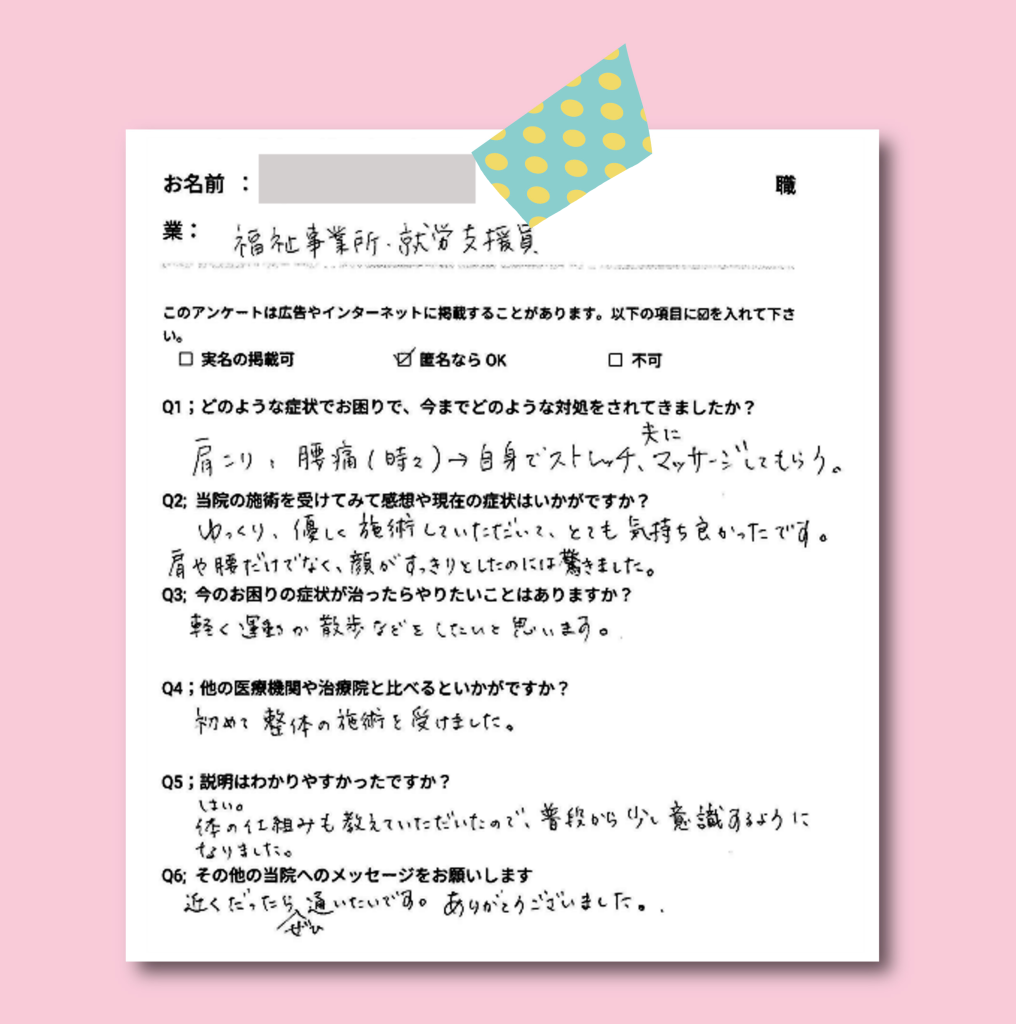 お名前 ： 職
業： 福祉事業所・就労支援員
このアンケートは広告やインターネットに掲載することがあります。以下の項目に☑を入れて下さ
い。
□ 実名の掲載可 ☑ 匿名なら OK □ 不可
Q1；どのような症状でお困りで、今までどのような対処をされてきましたか？
夫に
肩こり、腰痛(時々)→自身でストレッチ、マッサージしてもらう。
Q2; 当院の施術を受けてみて感想や現在の症状はいかがですか？
ゆっくり、優しく施術していただいて、とても気持ち良かったです。
肩や腰だけでなく、顔がすっきりとしたのには驚きました。
Q3; 今のお困りの症状が治ったらやりたいことはありますか？
軽く運動か散歩などをしたいと思います。
Q4；他の医療機関や治療院と比べるといかがですか？
初めて整体の施術を受けました。
Q5；説明はわかりやすかったですか？
はい。
体の仕組みも教えていただいたので、普段から少し意識するように
なりました。
Q6; その他の当院へのメッセージをお願いします
近くだったら通いたいです。ありがとうございました。
ぜひ